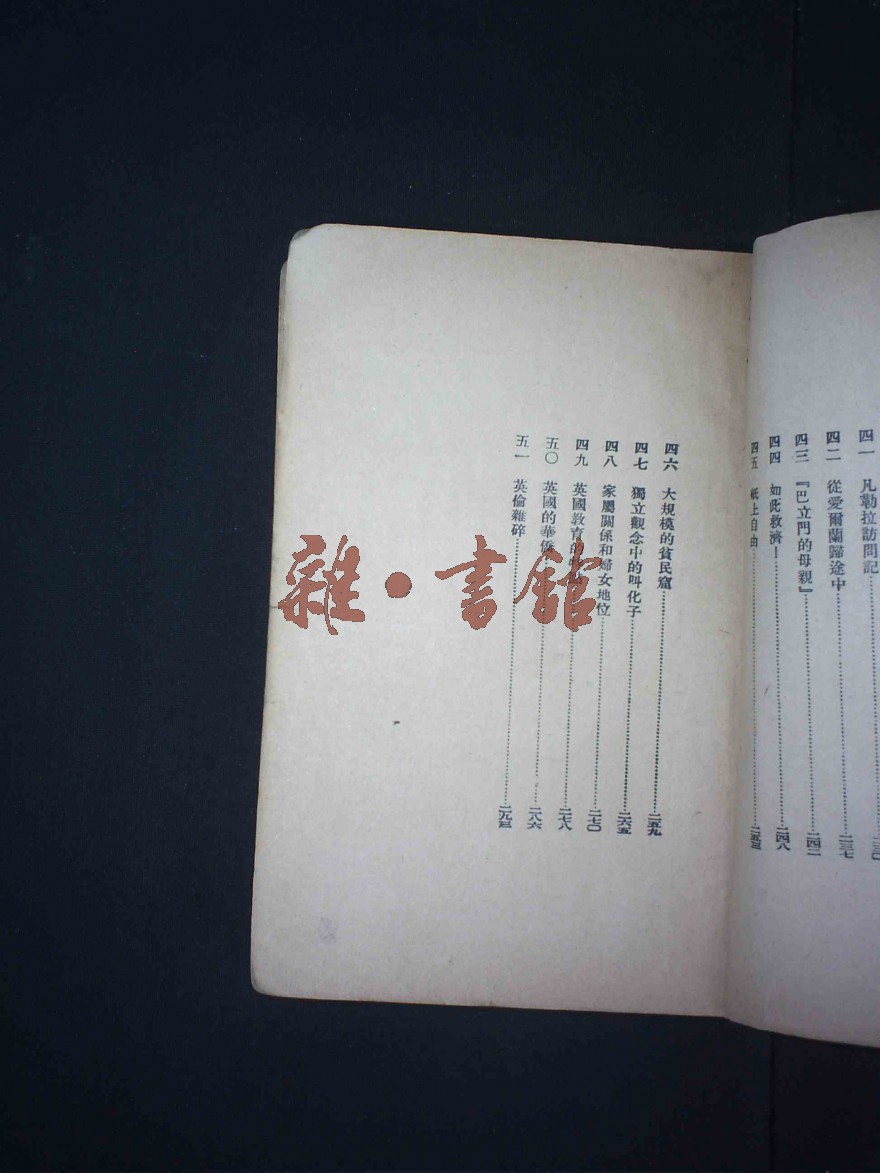 四一 凡勒拉訪問記……二三〇
四二 從愛爾蘭歸途中……二三七
四三 『巴立門的母親』……二四二
四四 如此救濟！……二四八
四五 紙上自由……二五三
四六 大規模的貧民窟……二五九
四七 獨立觀念中的叫化子……二六五
四八 家屬關係和婦女地位……二七〇
四九 英國教育的……二七八
五〇 英國的華僑……二八六
五一 英倫雜碎……二九三
雜·書館